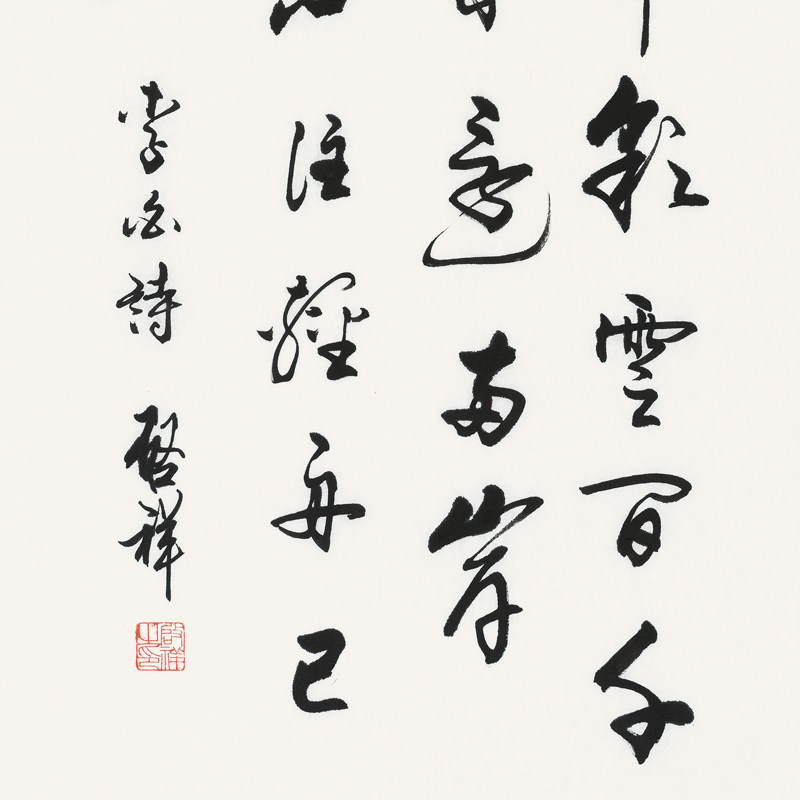 彩雲間千
還兩岸
住輕舟已
李白詩 啓祥
啓祥之印